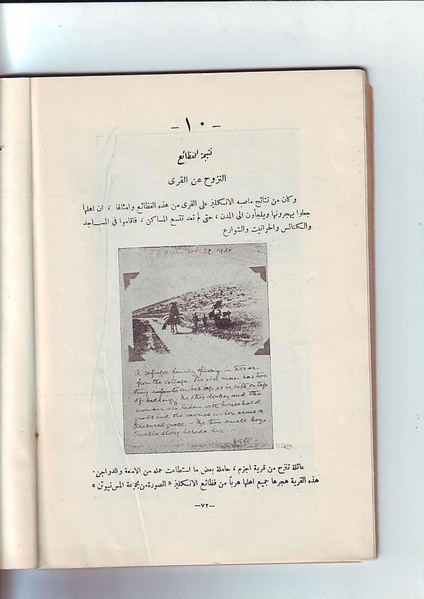 -١٠-
نتيجة الفظائع
النزوح عن القرى
وكان من نتائج ماصبه الانكليز على القرى من هذه الفظائع وامثالها ، ان اهلها
جعلوا يهجرونها ويلجأون الى المدن ، حتى لم تعد تتسع المساكن ، فاقاموا في المساجد
والكنائس والحوانيت والشوارع
A refugee family fleeing in terror
from the village. The old man has two
tiny infants on his lap as he sits on top
of bedding. The other donkey and the
woman are laden with household
goods and she carries in her arms a
treasured goose. The two small boys
along beside her.
عائلة تنزح من قرية اجزم ، حاملة بعض ما استطاعت حمله من الامتعة والدواجن .
هذه القرية هجرها جميع اهلها هرباً من فظائع الانكليز « الصورة من مجموعة المس نيوتن »
-٧٢-